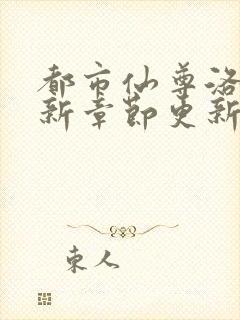 都市仙尊洛
新章节更新
東人